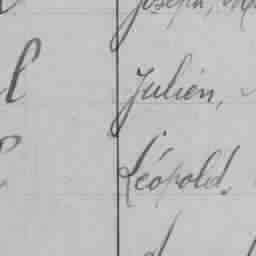 Joseph,
Julien,
Léopold,